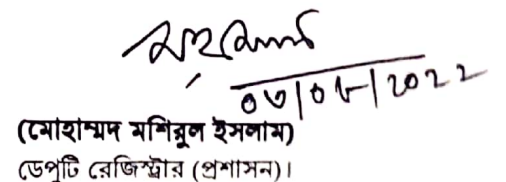 ০৩|০৮|২০২২
(মোহাম্মদ মশিরুল ইসলাম)
ডেপুটি রেজিস্ট্রার (প্রশাসন)।